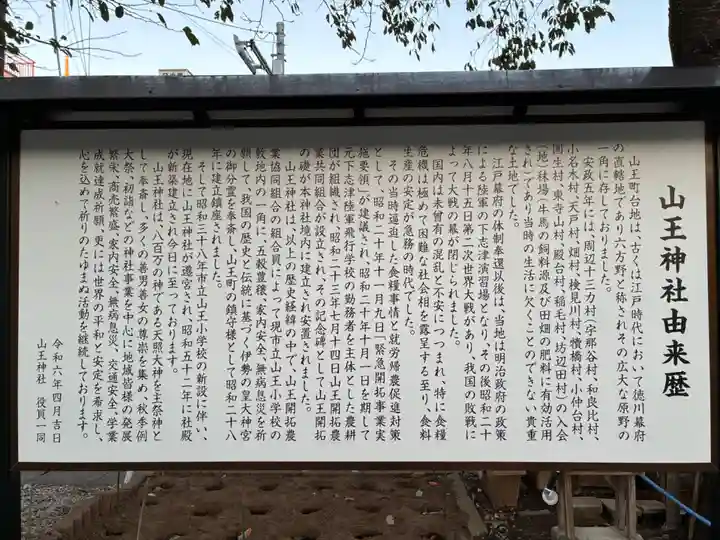 山王神社由来歴
山王町台地は、古くは江戸時代において徳川幕府
の直轄地であり六方野と称されその広大な原野の
一角に存しておりました。
安政五年には、周辺十三カ村(宇那谷村、和良比村、
小名木村、天戸村、畑村、検見川村、犢橋村、小仲台村、
園生村、東寺山村、殿台村、稲毛村、坊辺田村)の入会
(地)秣場(牛馬の飼料源及び田畑の肥料に有効活用
され)であり当時の生活に欠くことのできない貴重
な土地でした。
江戸幕府の体制奉還以後は、当地は明治政府の政策
による陸軍の下志津演習場となり、その後昭和二十
年八月十五日第二次世界大戦があり、我国の敗戦に
よって大戦の幕が閉じられました。
国内は未曽有の混乱と不安につつまれ、特に食糧
危機は極めて困難な社会相を露呈する至り、食料
生産の安定が急務の時代でした。
その当時逼迫した食糧事情と就労帰農促進対策
として、昭和二十年十一月九日「緊急開拓事業実
施要領」が建議され、昭和二十年十一月二日を期して
元下志津陸軍飛行学校の勤務者を主体とした農耕
団が組織され、昭和二十三年七月十四日山王開拓農
業共同組合が設立され、その記念碑として山王開拓
の礎が本神社境内に建立され安置されました。
山王神社は、以上の歴史経緯の中で、山王開拓農
業協同組合の組合員によって現市立山王小学校の
敷地内の一角に、五穀豊穣、家内安全、無病息災を祈
願して、我国の歴史と伝統に基づく伊勢の皇大神宮
の御分霊を奉斎し、山王町の鎮守様として昭和二十八
年に建立鎮座されました。
そして昭和三十八年市立山王小学校の新設に伴い、
現在地に山王神社が遷宮され、昭和五十二年に社殿
が新築建立され今日に至っております。
山王神社は、八百万の神である天照大神を主祭神と
して奉斎し、多くの善男善女の尊崇を集め、秋季例
大祭、初詣などの神社事業を中心に地域皆様の発展
繁栄、商売繁盛、家内安全、無病息災、交通安全、学業
成就達成祈願、更には世界の平和と安定を希求し、
心を込めて祈りのたゆまぬ活動を継続しております。
令和六年四月吉日
山王神社 役員一同